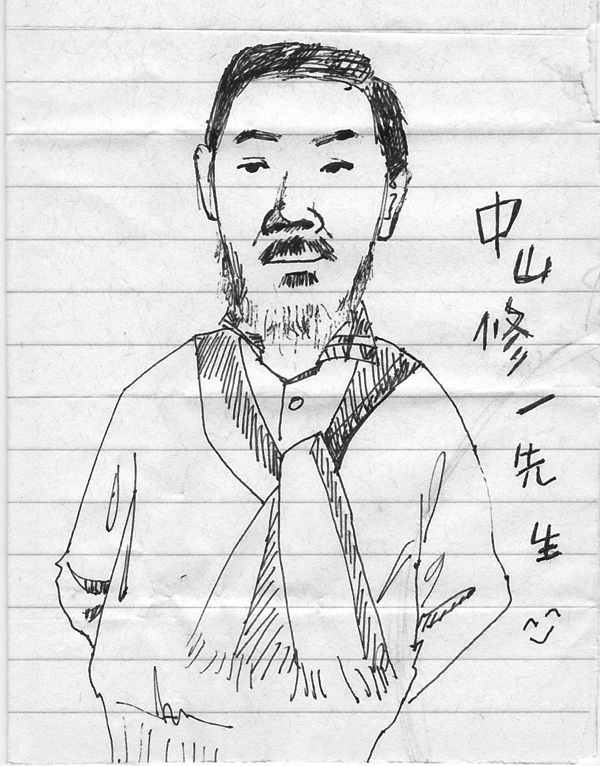 中山修一先生